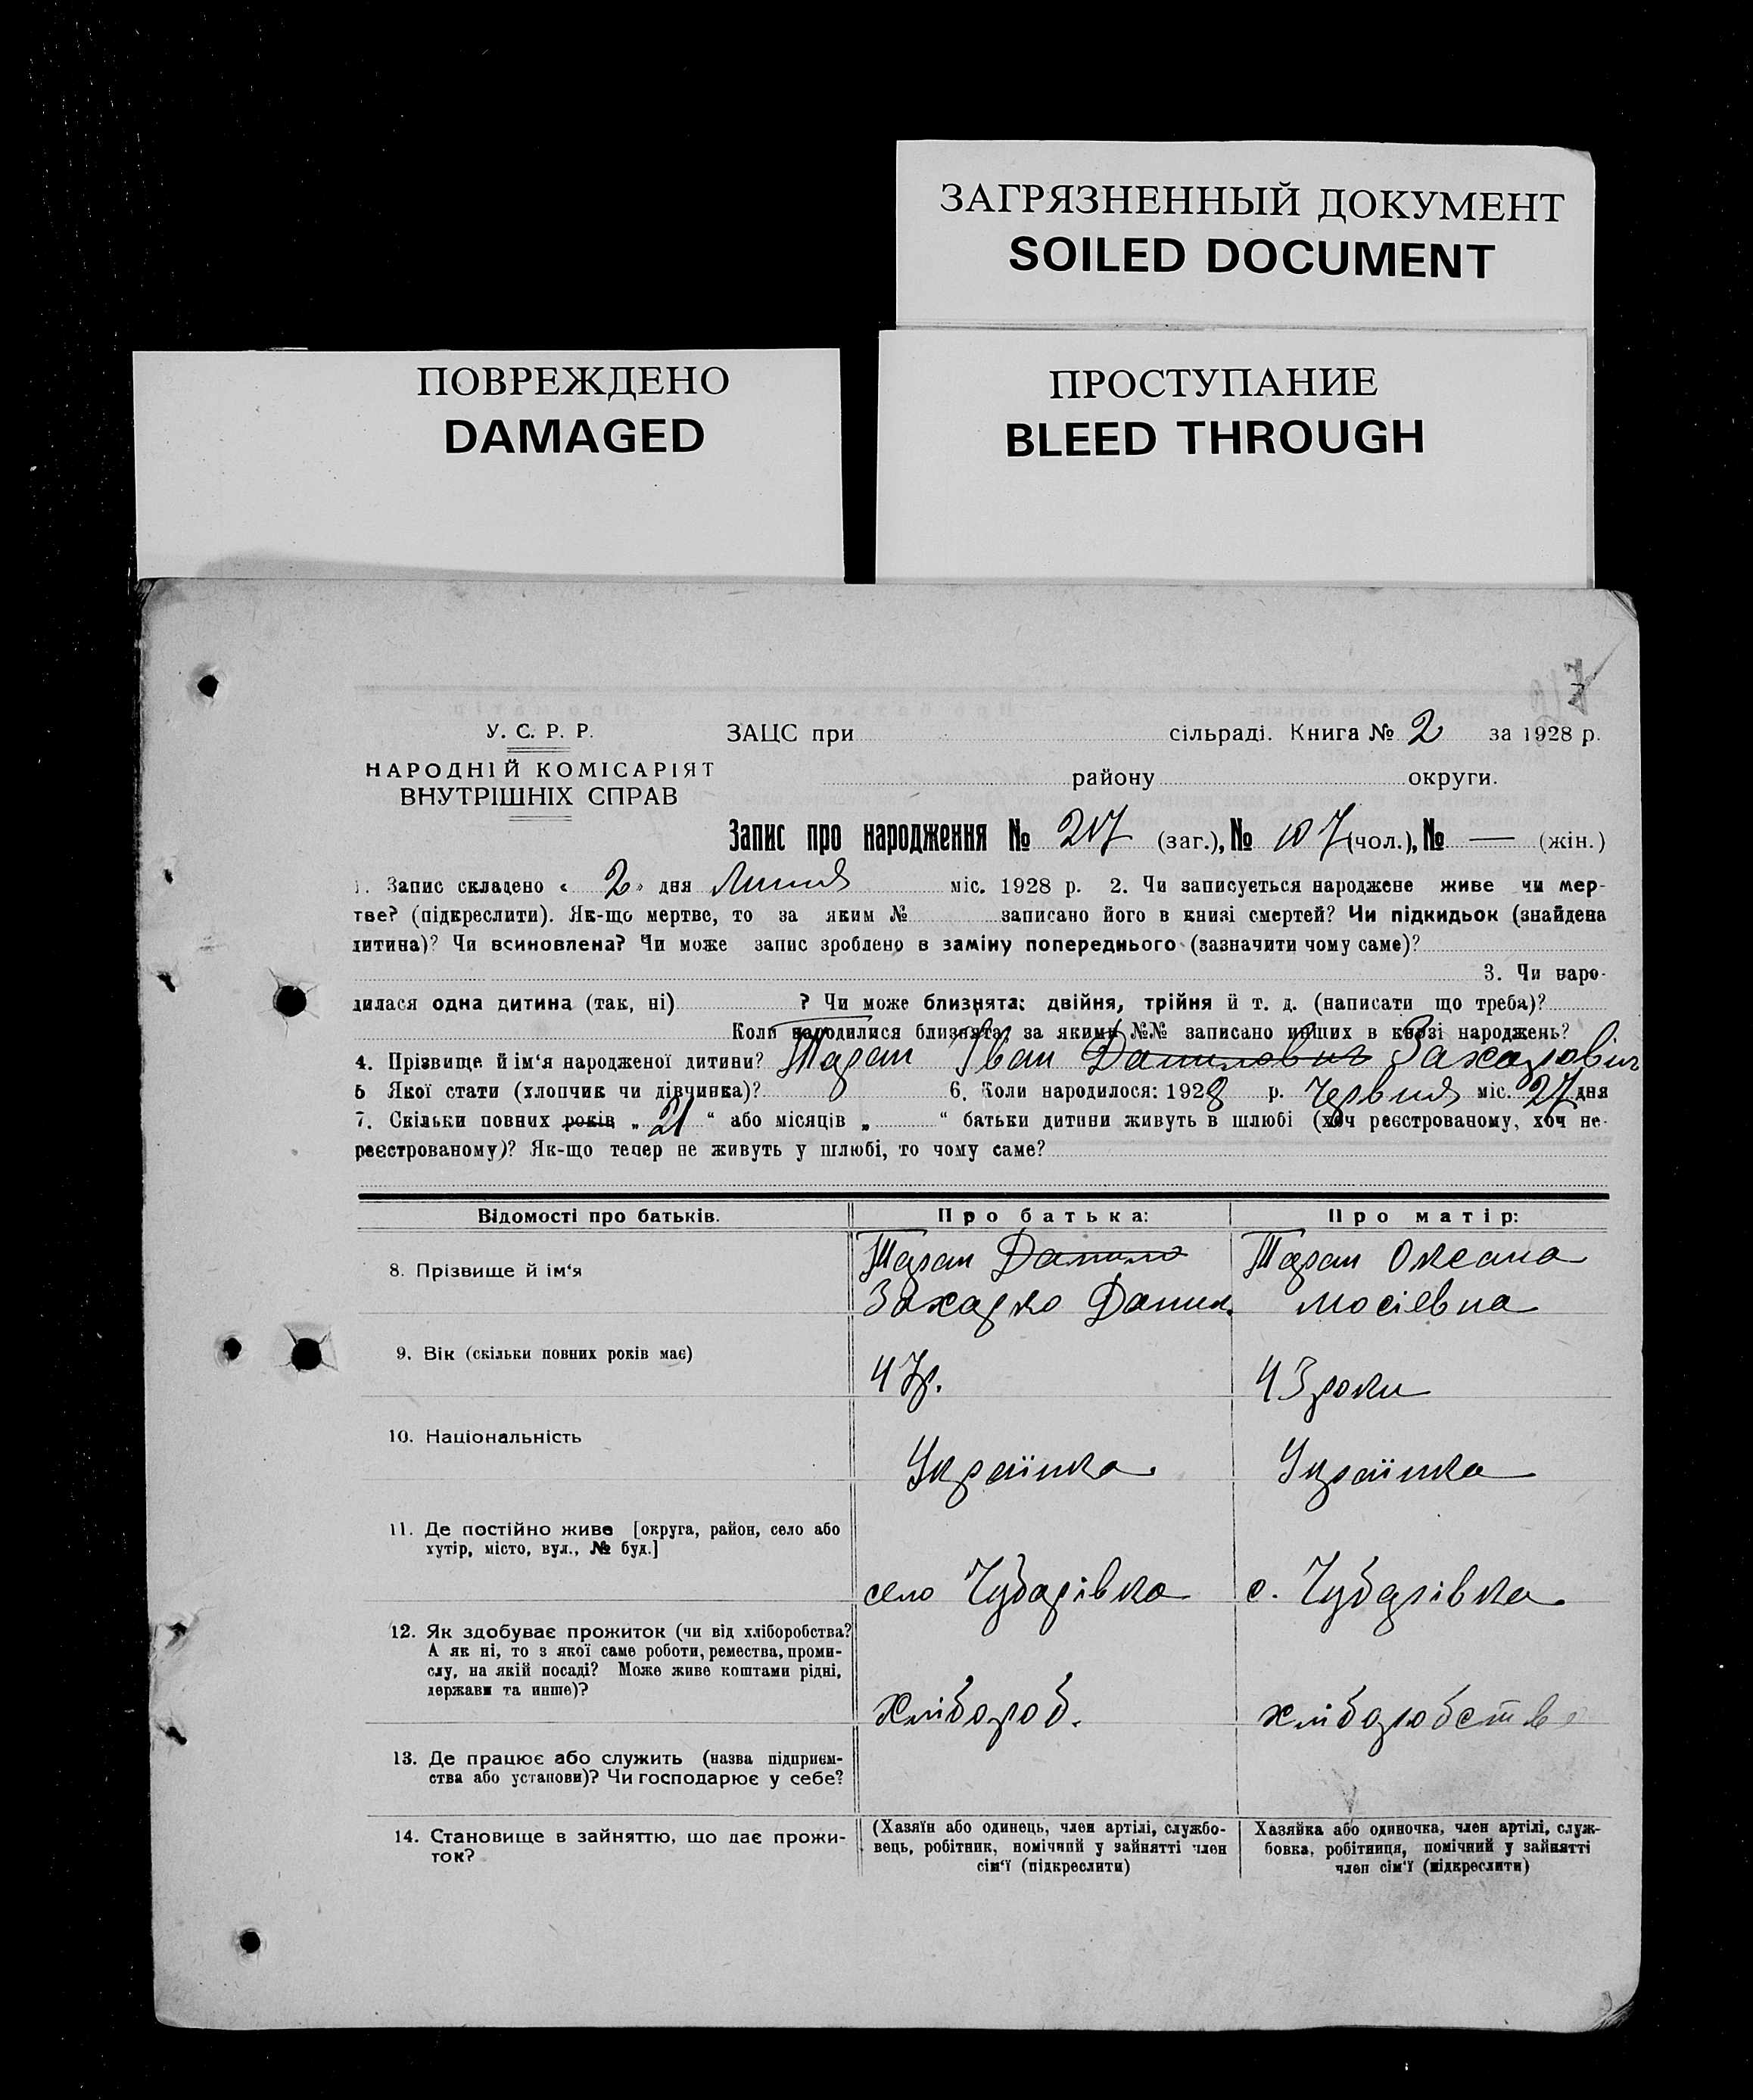 ЗАГРЯЗНЕННЫЙ ДОКУМЕНТ
SOILED DOCUMENT
ПОВРЕЖДЕНО
DAMAGED
ПРОСТУПАНИЕ
BLEED THROUGH
У. С. Р. Р.
НАРОДНІЙ КОМІСАРІЯТ
ВНУТРІШНІХ СПРАВ
ЗАЦС при сільраді. Книга № 2 за 1928 р.
району округи.
Запис про народження № 217 (заг.), № 107 (чол.), № — (жін.)
1. Запис складено « 2 » дня Липня міс. 1928 р. 2. Чи записується народжене живе чи мер-
тве? (підкреслити). Як-що мертве, то за яким № записано його в книзі смертей? Чи підкидьок (знайдена
дитина)? Чи всиновлена? Чи може запис зроблено в заміну попереднього (зазначити чому саме)?
3. Чи наро-
дилася одна дитина (так, ні) ? Чи може близнята: двійня, трійня й т. д. (написати що треба)?
Коли народилися близнята, за якими №№ записано инших в книзі народжень?
4. Прізвище й ім‘я народженої дитини? Таран Іван Данилович Захарович
5 Якої стати (хлопчик чи дівчинка)? 6. Коли народилося: 1928 р. Червня міс. 27 дня
7. Скільки повних років „ 21 “ або місяців „ “ батьки дитини живуть в шлюбі (хоч реєстрованому, хоч не-
реєстрованому)? Як-що тепер не живуть у шлюбі, то чому саме?
Відомості про батьків.
Про батька:
Про матір:
8. Прізвище й ім‘я
Таран Данило
Захарко Данил.
Таран Оксана
Мосіевна
9. Вік (скільки повних років має)
47р.
43 роки
10. Національність
Українка
Українка
11. Де постійно живе [округа, район, село або
хутір, місто, вул., № буд.]
село Чубарівка
с. Чубарівка
12. Як здобуває прожиток (чи від хліборобства?
А як ні, то з якої саме роботи, ремества, проми-
слу, на якій посаді? Може живе коштами рідні,
держави та инше)?
Хлібороб.
хліборобство
13. Де працює або служить (назва підприєм-
ства або установи)? Чи господарює у себе?
14. Становище в зайняттю, що дає прожи-
ток?
(Хазяїн або одинець, член артілі, службо-
вець, робітник, помічний у зайнятті член
сім‘ї (підкреслити)
Хазяйка або одиночка, член артілі, служ-
бовка, робітниця, помічний у зайнятті
член сім‘ї (підкреслити)